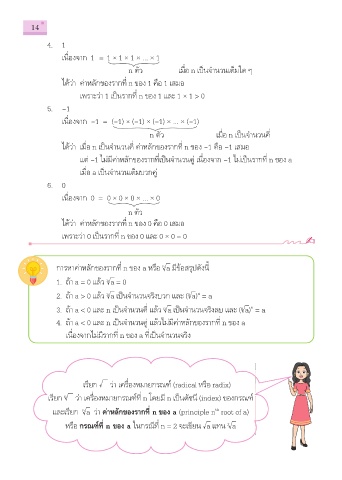 14
4. 1
เนื่องจาก 1 = 1 × 1 × 1 × ... × 1
n ตัว เมื่อ n เป็นจำนวนเต็มใด ๆ
ได้ว่า ค่าหลักของรากที่ n ของ 1 คือ 1 เสมอ
เพราะว่า 1 เป็นรากที่ n ของ 1 และ 1 × 1 > 0
5. −1
เนื่องจาก −1 = (−1) × (−1) × (−1) × ... × (−1)
n ตัว เมื่อ n เป็นจำนวนคี่
ได้ว่า เมื่อ n เป็นจำนวนคี่ ค่าหลักของรากที่ n ของ −1 คือ −1 เสมอ
แต่ −1 ไม่มีค่าหลักของรากที่เป็นจำนวนคู่ เนื่องจาก −1 ไม่เป็นรากที่ n ของ a
เมื่อ a เป็นจำนวนเต็มบวกคู่
6. 0
เนื่องจาก 0 = 0 × 0 × 0 × ... × 0
n ตัว
ได้ว่า ค่าหลักของรากที่ n ของ 0 คือ 0 เสมอ
เพราะว่า 0 เป็นรากที่ n ของ 0 และ 0 × 0 = 0
การหาค่าหลักของรากที่ n ของ a หรือ ⁿ√a มีข้อสรุปดังนี้
1. ถ้า a = 0 แล้ว ⁿ√a = 0
2. ถ้า a > 0 แล้ว ⁿ√a เป็นจำนวนจริงบวก และ (ⁿ√a)ⁿ = a
3. ถ้า a < 0 และ n เป็นจำนวนคี่ แล้ว ⁿ√a เป็นจำนวนจริงลบ และ (ⁿ√a)ⁿ = a
4. ถ้า a < 0 และ n เป็นจำนวนคู่ แล้วไม่มีค่าหลักของรากที่ n ของ a
เนื่องจากไม่มีรากที่ n ของ a ที่เป็นจำนวนจริง
เรียก √ ว่า เครื่องหมายกรณฑ์ (radical หรือ radix)
เรียก ⁿ√ ว่า เครื่องหมายกรณฑ์ที่ n โดยมี n เป็นดัชนี (index) ของกรณฑ์
และเรียก ⁿ√a ว่า ค่าหลักของรากที่ n ของ a (principle nᵗʰ root of a)
หรือ กรณฑ์ที่ n ของ a ในกรณีที่ n = 2 จะเขียน √a แทน ²√a